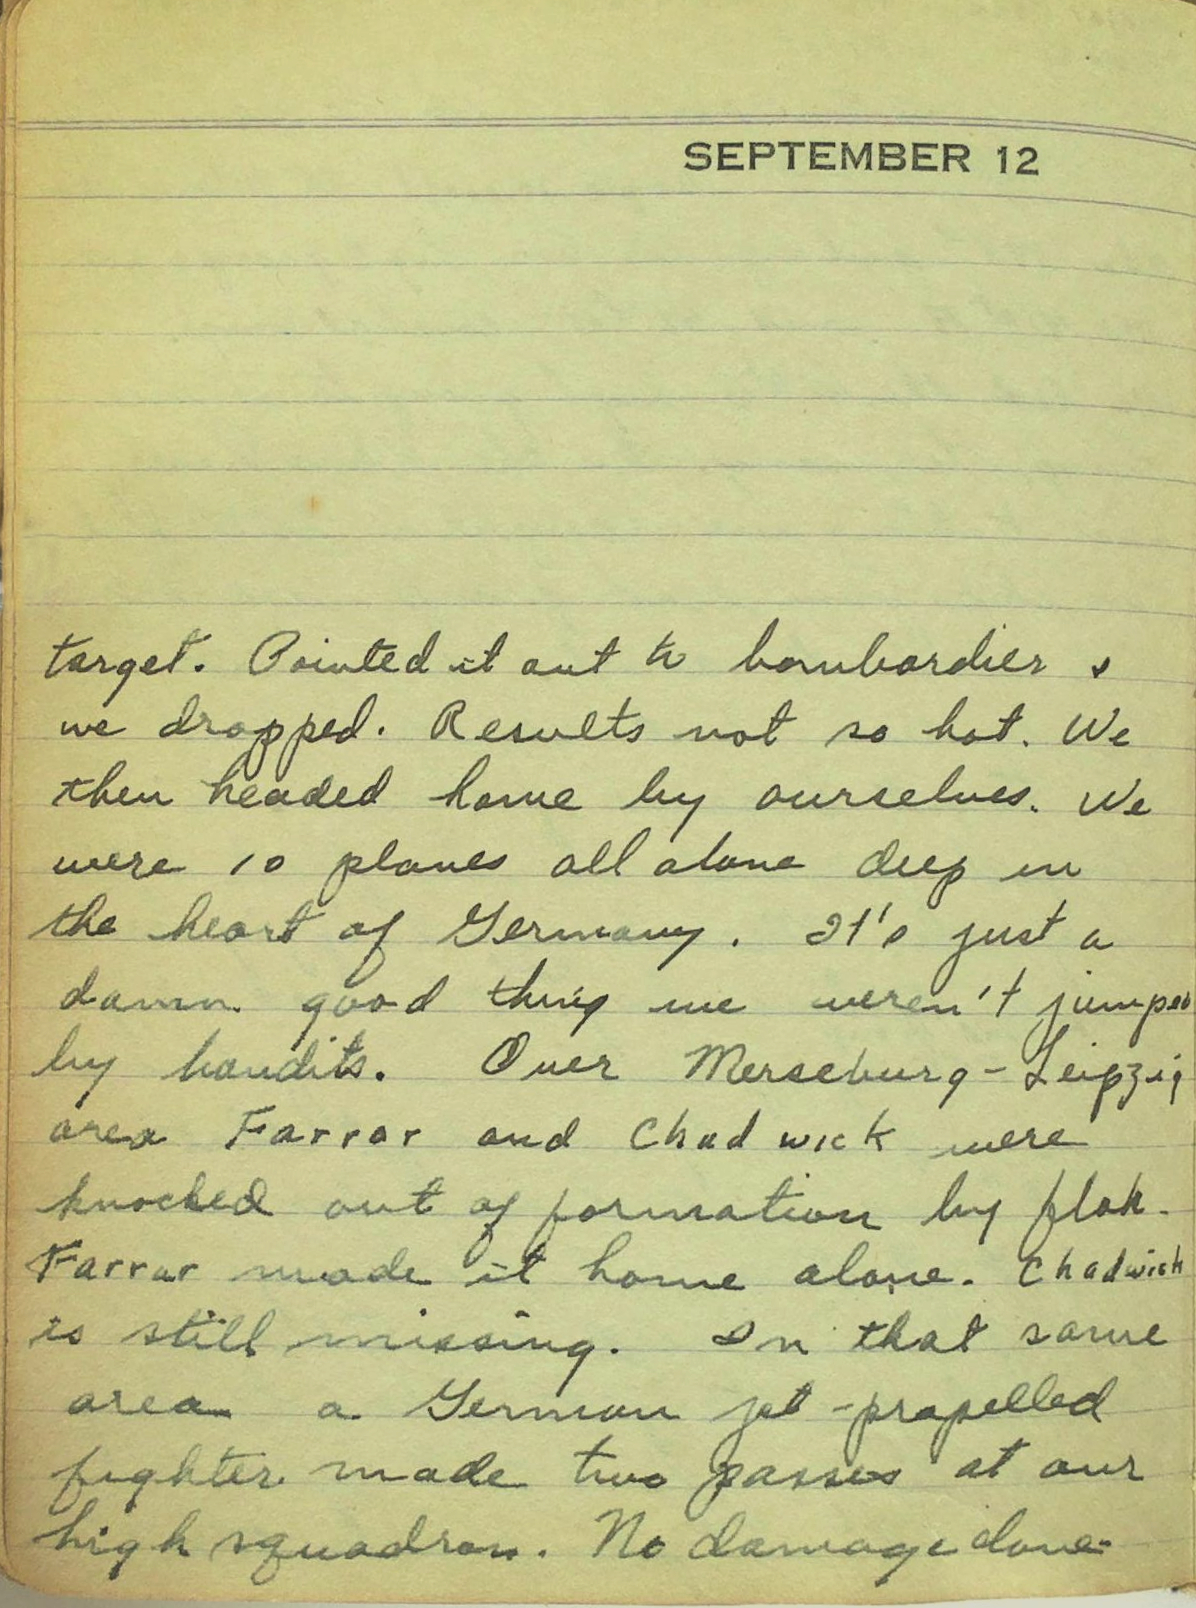 SEPTEMBER 12
target. Pointed it out to bombardier &
we dropped. Results not so hot. We
then headed home by ourselves. We
were 10 planes all alone deep in
the heart of Germany. It's just a
damn good thing we weren't jumped
by bandits. Over Merseburg-Leipzig
area Farrar and Chadwick were
knocked out of formation by flak.
Farrar made it home alone. Chadwick
is still missing. In that same
area a German jet-propelled
fighter made two passes at our
high squadron. No damage done.